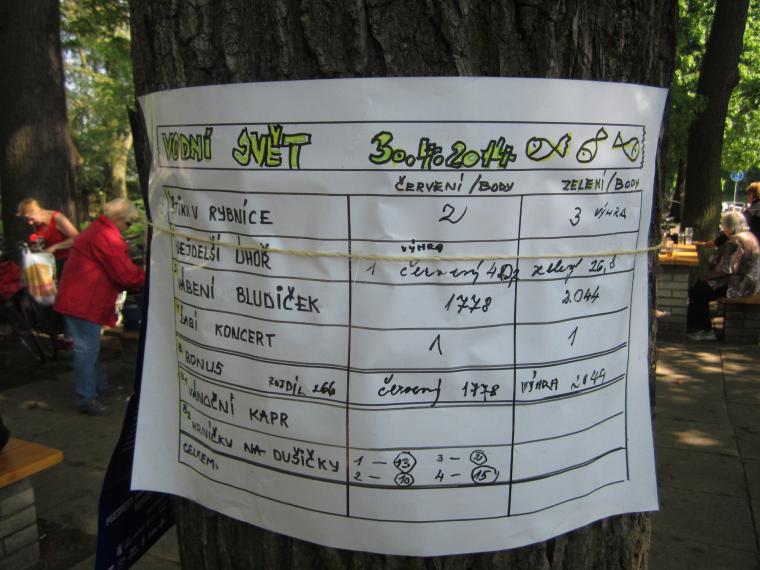 VODNÍ SVĚT 30.4.2014
ČERVENÍ/BODY ZELENÍ/BODY
ŠTIKA V RYBNÍCE 2 3 VÝHRA
NEJDELŠÍ ÚHOŘ VÝHRA
1 červený zelený 26,8
VÁBENÍ BLUDIČEK 1778 2.044
ŽABÍ KONCERT 1 1
BONUS ROZDÍL 266 červený 1778 VÝHRA
B1 VÁNOČNÍ KAPR
B2 HRNÍČKY NA DUŠIČKY 1 – 13 3 –
2 – 10 4 – 15
CELKEM: